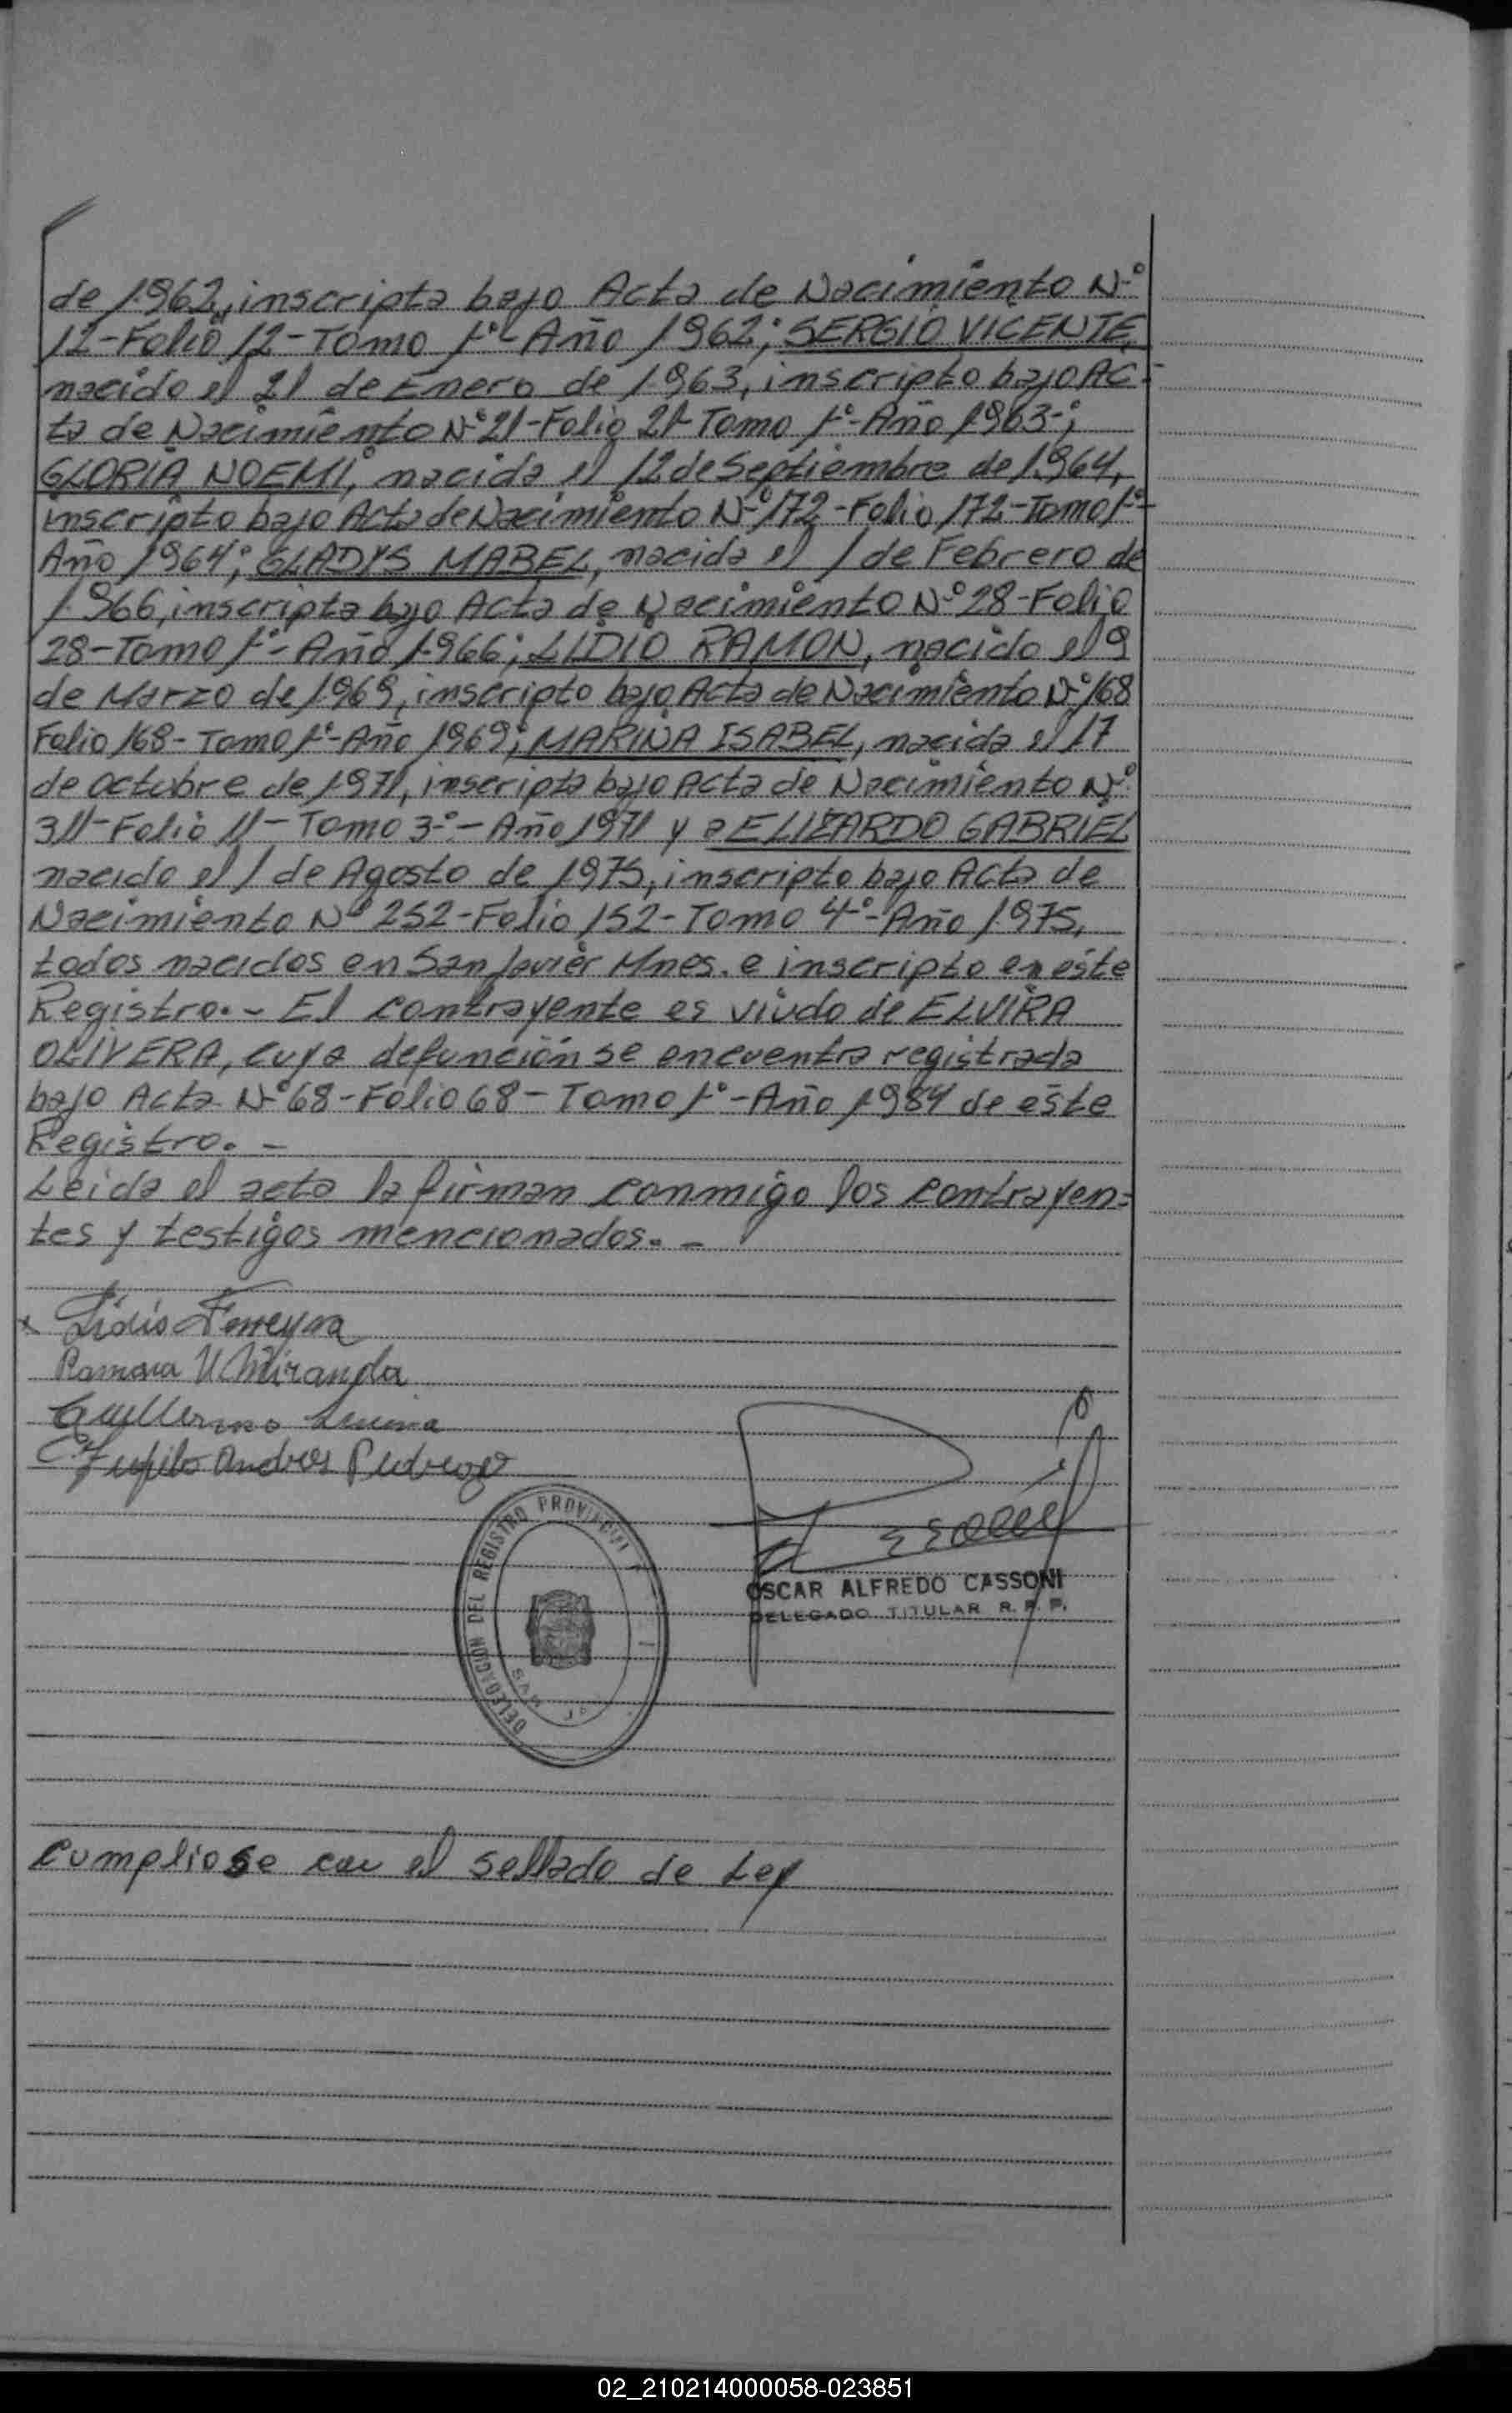 de 1.962, inscripta bajo Acta de Nacimiento Nº
12-Folio 12-Tomo 1º-Año 1962; SERGIO VICENTE,
nacido el 21 de Enero de 1.963, inscripto bajo Ac-
ta de Nacimiento Nº 21-Folio 21-Tomo 1º-Año 1963-;
GLORIA NOEMI, nacida el 12 de Septiembre de 1.964,
inscripto bajo Acta de Nacimiento Nº 172-Folio 172-Tomo 1º-
Año 1964; GLADYS MABEL, nacida el 1 de Febrero de
1.966, inscripta bajo Acta de Nacimiento Nº 28-Folio
28-Tomo 1º-Año 1.966; LIDIO RAMON, nacido el 9
de Marzo de 1.969, inscripto bajo Acta de Nacimiento Nº 168
Folio 168-Tomo 1º-Año 1969; MARINA ISABEL, nacida el 17
de octubre de 1.971, inscripta bajo Acta de Nacimiento Nº
311-Folio 11-Tomo 3º-Año 1971 y a ELIZARDO GABRIEL
nacido el 1 de Agosto de 1.975, inscripto bajo Acta de
Nacimiento Nº 252-Folio 152-Tomo 4º-Año 1.975,
todos nacidos en San Javier Mnes. e inscripto en éste
Registro.- El contrayente es viudo de ELVIRA
OLIVERA, cuya defunción se encuentra registrada
bajo Acta Nº 68-Folio 68-Tomo 1º-Año 1.984 de éste
Registro.-
Leida el acta la firman conmigo los contrayen=
tes y testigos mencionados.-
Lidio Ferreyra
Ramona V. Miranda
Guillermo
Andres Pedrozo
DELEGACION DEL REGISTRO PROVINCIAL
OSCAR ALFREDO CASSONI
DELEGADO TITULAR R. P. P.
Cumpliose con el sellado de Ley
02_210214000058-023851